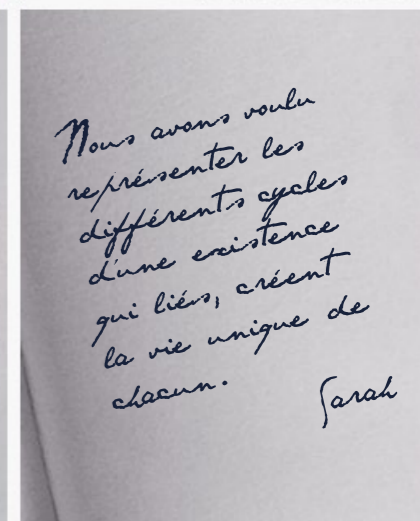 Nous avons voulu
représenter les
différents cycles
d'une existence
qui liés, créent
la vie unique de
chacun.
Sarah